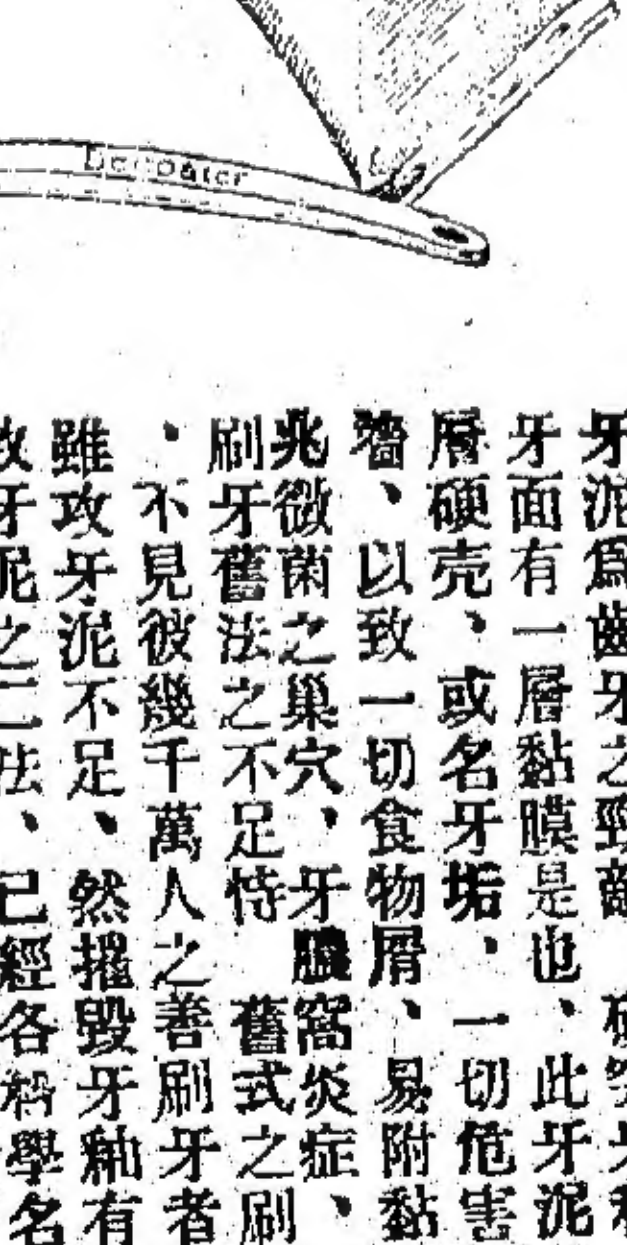 Decoater
牙泥爲齒牙之勁敵
牙面有一層黏膜是也、此牙泥
層硬壳、或名牙垢、一切危害
牆、以致一切食物屑、易附黏
兆微菌之巢穴、牙臟窩炎症、
刷牙舊法之不足恃 舊式之刷
、不見彼幾千萬人之善刷牙者
雖攻牙泥不足、然摧毀牙釉有
攻牙泥之二法、已經各科學名